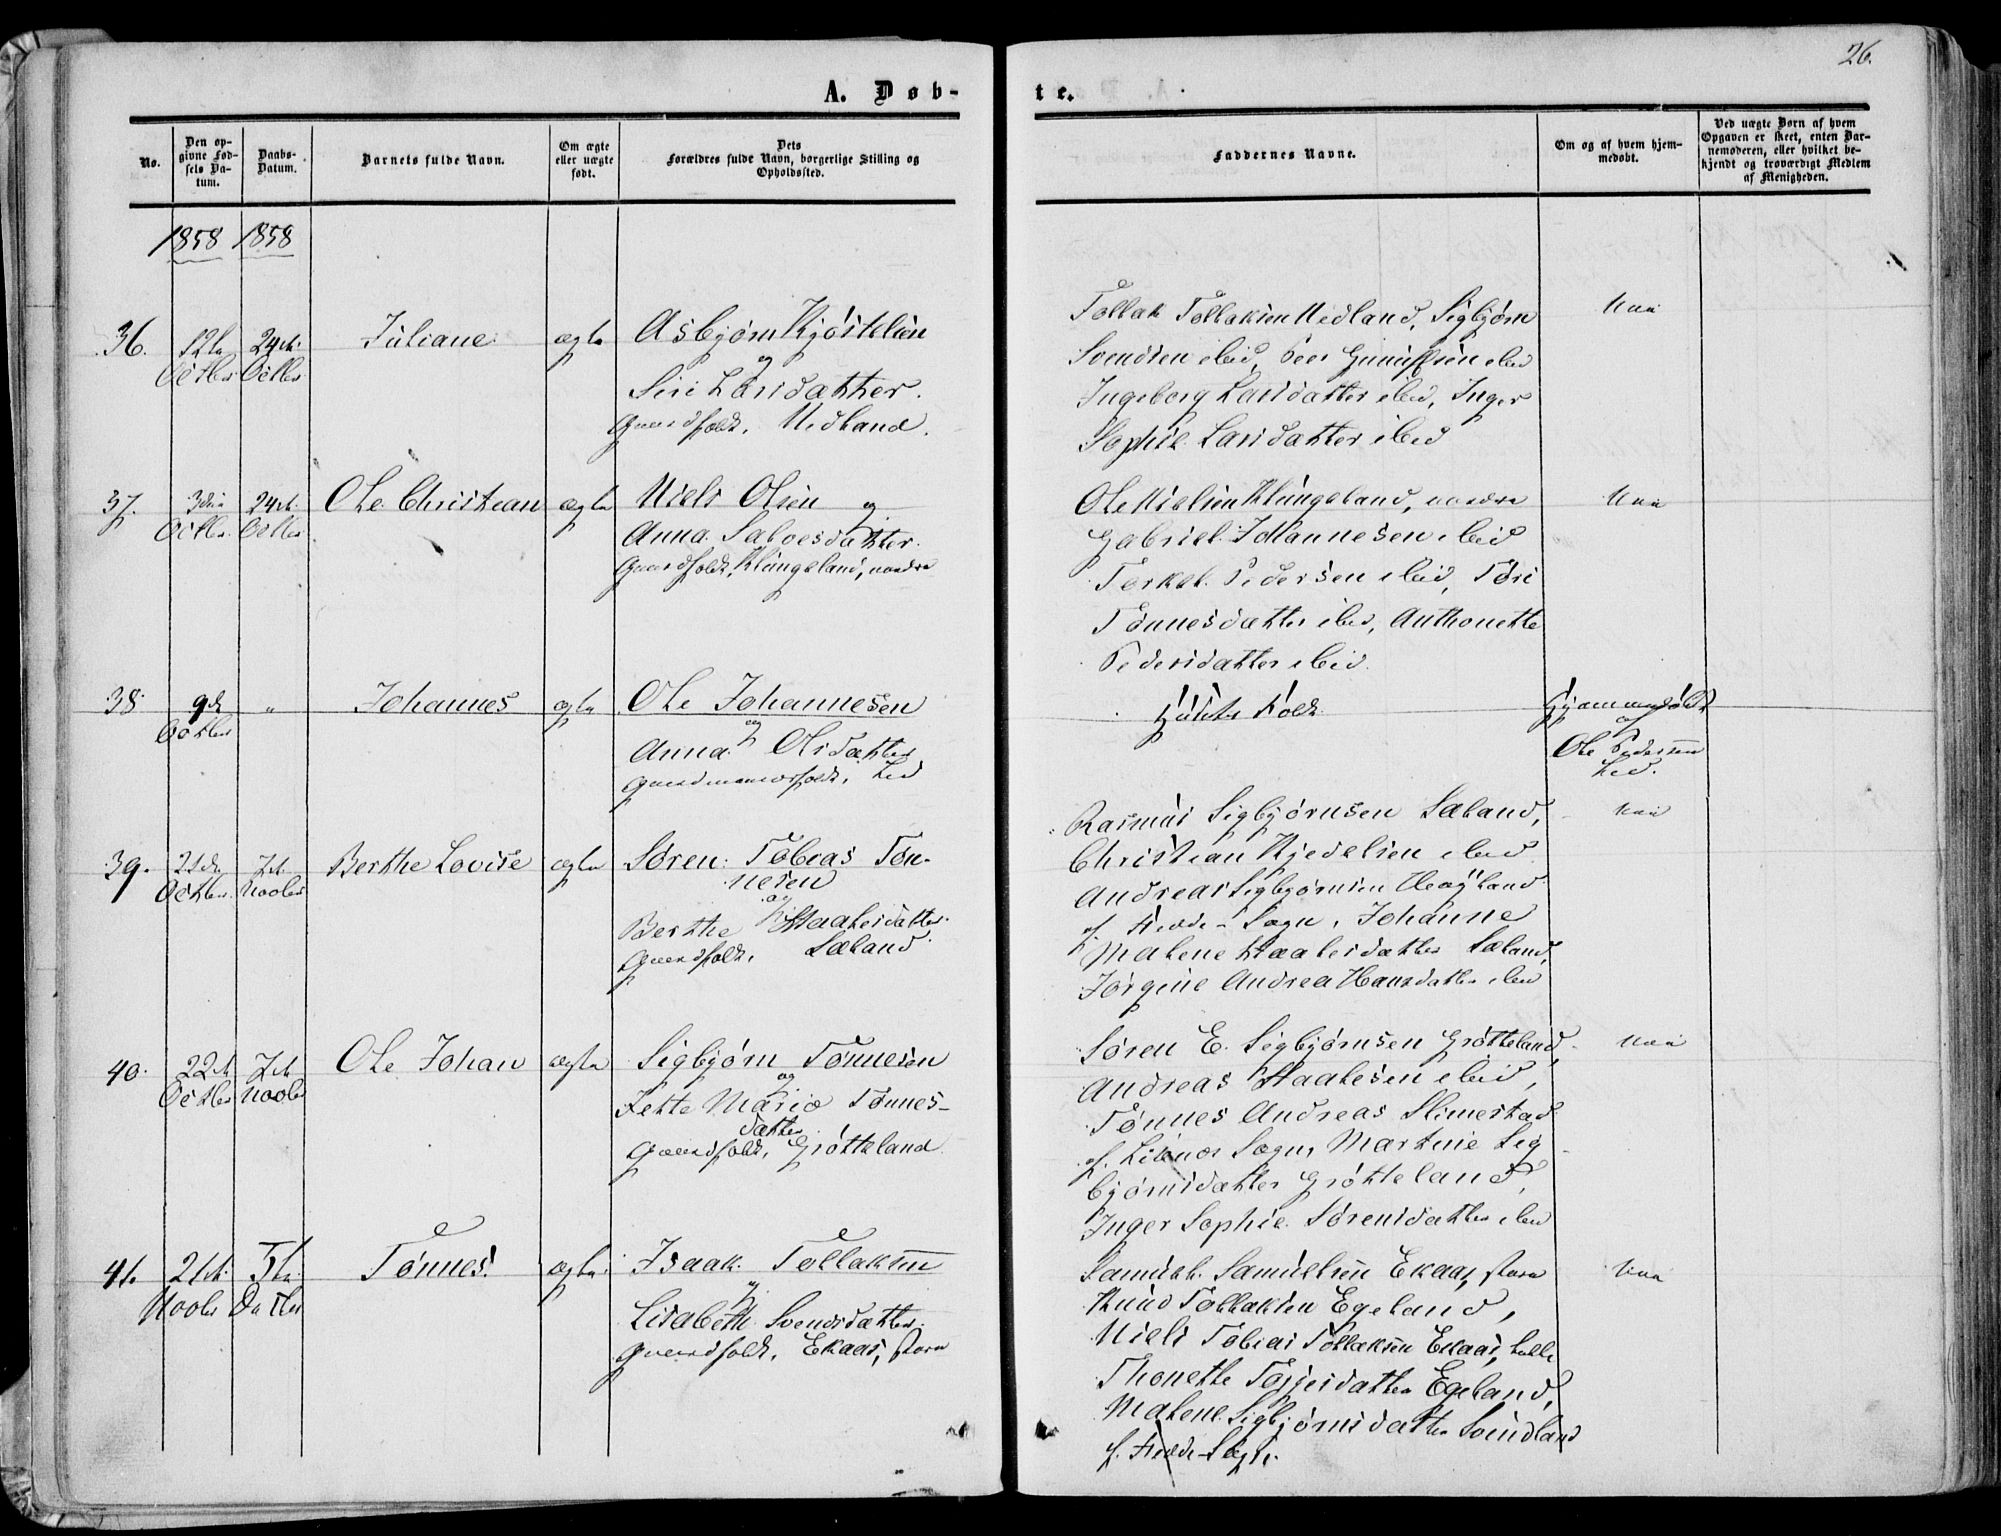 26.
A. Døb-
te.
No.
Den op-
givne Fød-
sels Da-
tum.
Daabs-
Datum.
Barnets fulde Navn.
Om ægte
eller uægte
født.
Dets
Forældres fulde Navn, borgerlige Stilling og
Opholdssted.
Faddernes Navne.
Om og af hvem hjem-
medøbt.
Ved uægte Børn af hvem
Opgaven er skeet, enten Bar-
nemoderen, eller hvilket be-
kjendt og troværdigt Medlem
af Menigheden.
1858 1858
36. 12te 24de Juliane ægte Asbjørn Kjøstelsen
Octbr Octbr og
Siri Larsdatter.
Gaardfolk, Nedland.
Tollak Tollaksen Nedland, Sigbjørn
Svendsen ibid, Peer Gunufsen ibid
Ingeborg Larsdatter ibid, Inger
Sophie Larsdatter ibid
37. 3die 24de Ole Christian ægte Niels Olsen og
Octbr. Octbr Anna Salvesdatter.
Gaardfolk, Klungeland, nordre
Ole Nielsen Klungeland, nordre
Gabriel Johannesen ibid
Terkel Pedersen ibid, Tøri
Tønnesdatter ibid, Anthonette
Pedersdatter ibid.
38. 9de " Johannes ægte Ole Johannesen
Octbr og
Anna Olsdatter
folk, Lid
Folk
Hjemmedøbt
af
Ole Pedersen
Lid.
39. 21de 7de Berthe Lovise ægte Søren Tobias Tøn-
Octbr. Novbr nesen
og
Berthe Haakesdatter.
Gaardfolk, Sæland.
Rasmus Sigbjørnsen Sæland,
Christian Kjedelsen ibid
Andreas Sigbjørnsen Høyland
af Fede-Sogn, Johanne
Malene Haakesdatter Sæland,
Jørgine Andrea Hansdatter ibid
40. 22de 7de Ole Johan ægte Sigbjørn Tønnesen
Octbr Novbr og
Jette Marie Tønnes-
datter
Gaardfolk, Grøtteland
Søren E. Sigbjørnsen Grøtteland,
Andreas Haakesen ibid,
Tønnes Andreas Slimestad
af Liknes Sogn, Martine Sig
bjørnsdatter Grøtteland,
Inger Sophie Sørensdatter ibid
41. 21de 5te Tønnes. ægte Isaak Tollaksen
Novbr Decbr og
Lisabeth Svendsdatter.
Gaardfolk, Ekaas, store
Samuel Samuelsen Ekaas, store
Knud Tollaksen Egeland,
Niels Tobias Tollaksen Ekaas, lille
Thonette Tarjesdatter Egeland,
Malene Sigbjørnsdatter Svindland
af Fede-Sogn.